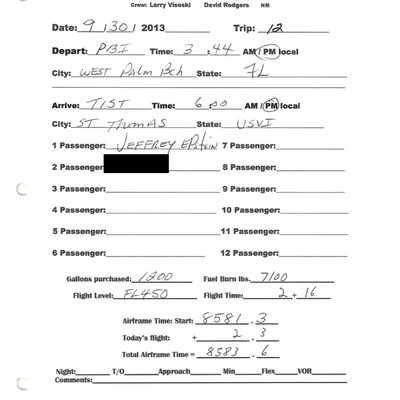 Crew: Larry Visoski David Rodgers NM
Date: 9/30/2013 Trip: 12
Depart: PBI Time: 3:44 AM/PM local
City: WEST Palm Bch State: FL
Arrive: TIST Time: 6:00 AM/PM local
City: ST THOMAS State: USVI
1 Passenger: JEFFREY EPStEIN 7 Passenger:
2 Passenger: 8 Passenger:
3 Passenger: 9 Passenger:
4 Passenger: 10 Passenger:
5 Passenger: 11 Passenger:
6 Passenger: 12 Passenger:
Gallons purchased: 1200 Fuel Burn lbs. 7100
Flight Level: FL450 Flight Time: 2 + 16
Airframe Time: Start: 8581 . 3
Today's flight: + 2 . 3
Total Airframe Time = 8583 . 6
Night: T/O Approach Min Flex VOR
Comments: